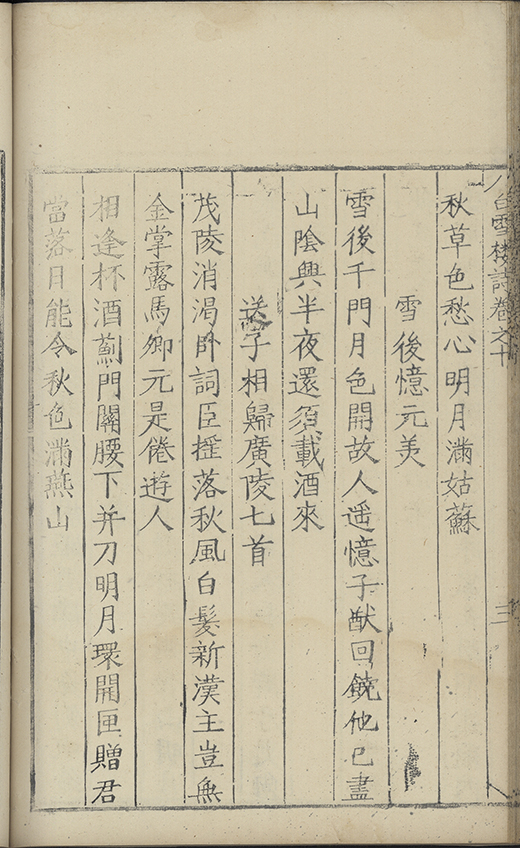 白雪楼詩卷之十
三
秋草色愁心明月滿姑蘇
雪後憶元美
雪後千門月色開故人遥憶子猷回饒他已盡
山陰興半夜還須載酒來
送子相歸廣陵七首
茂陵消渴卧詞臣揺落秋風白髮新漢主豈無
金掌露馬卿元是倦遊人
相逢杯酒薊門關腰下并刀明月環開匣贈君
當落日能令秋色滿燕山